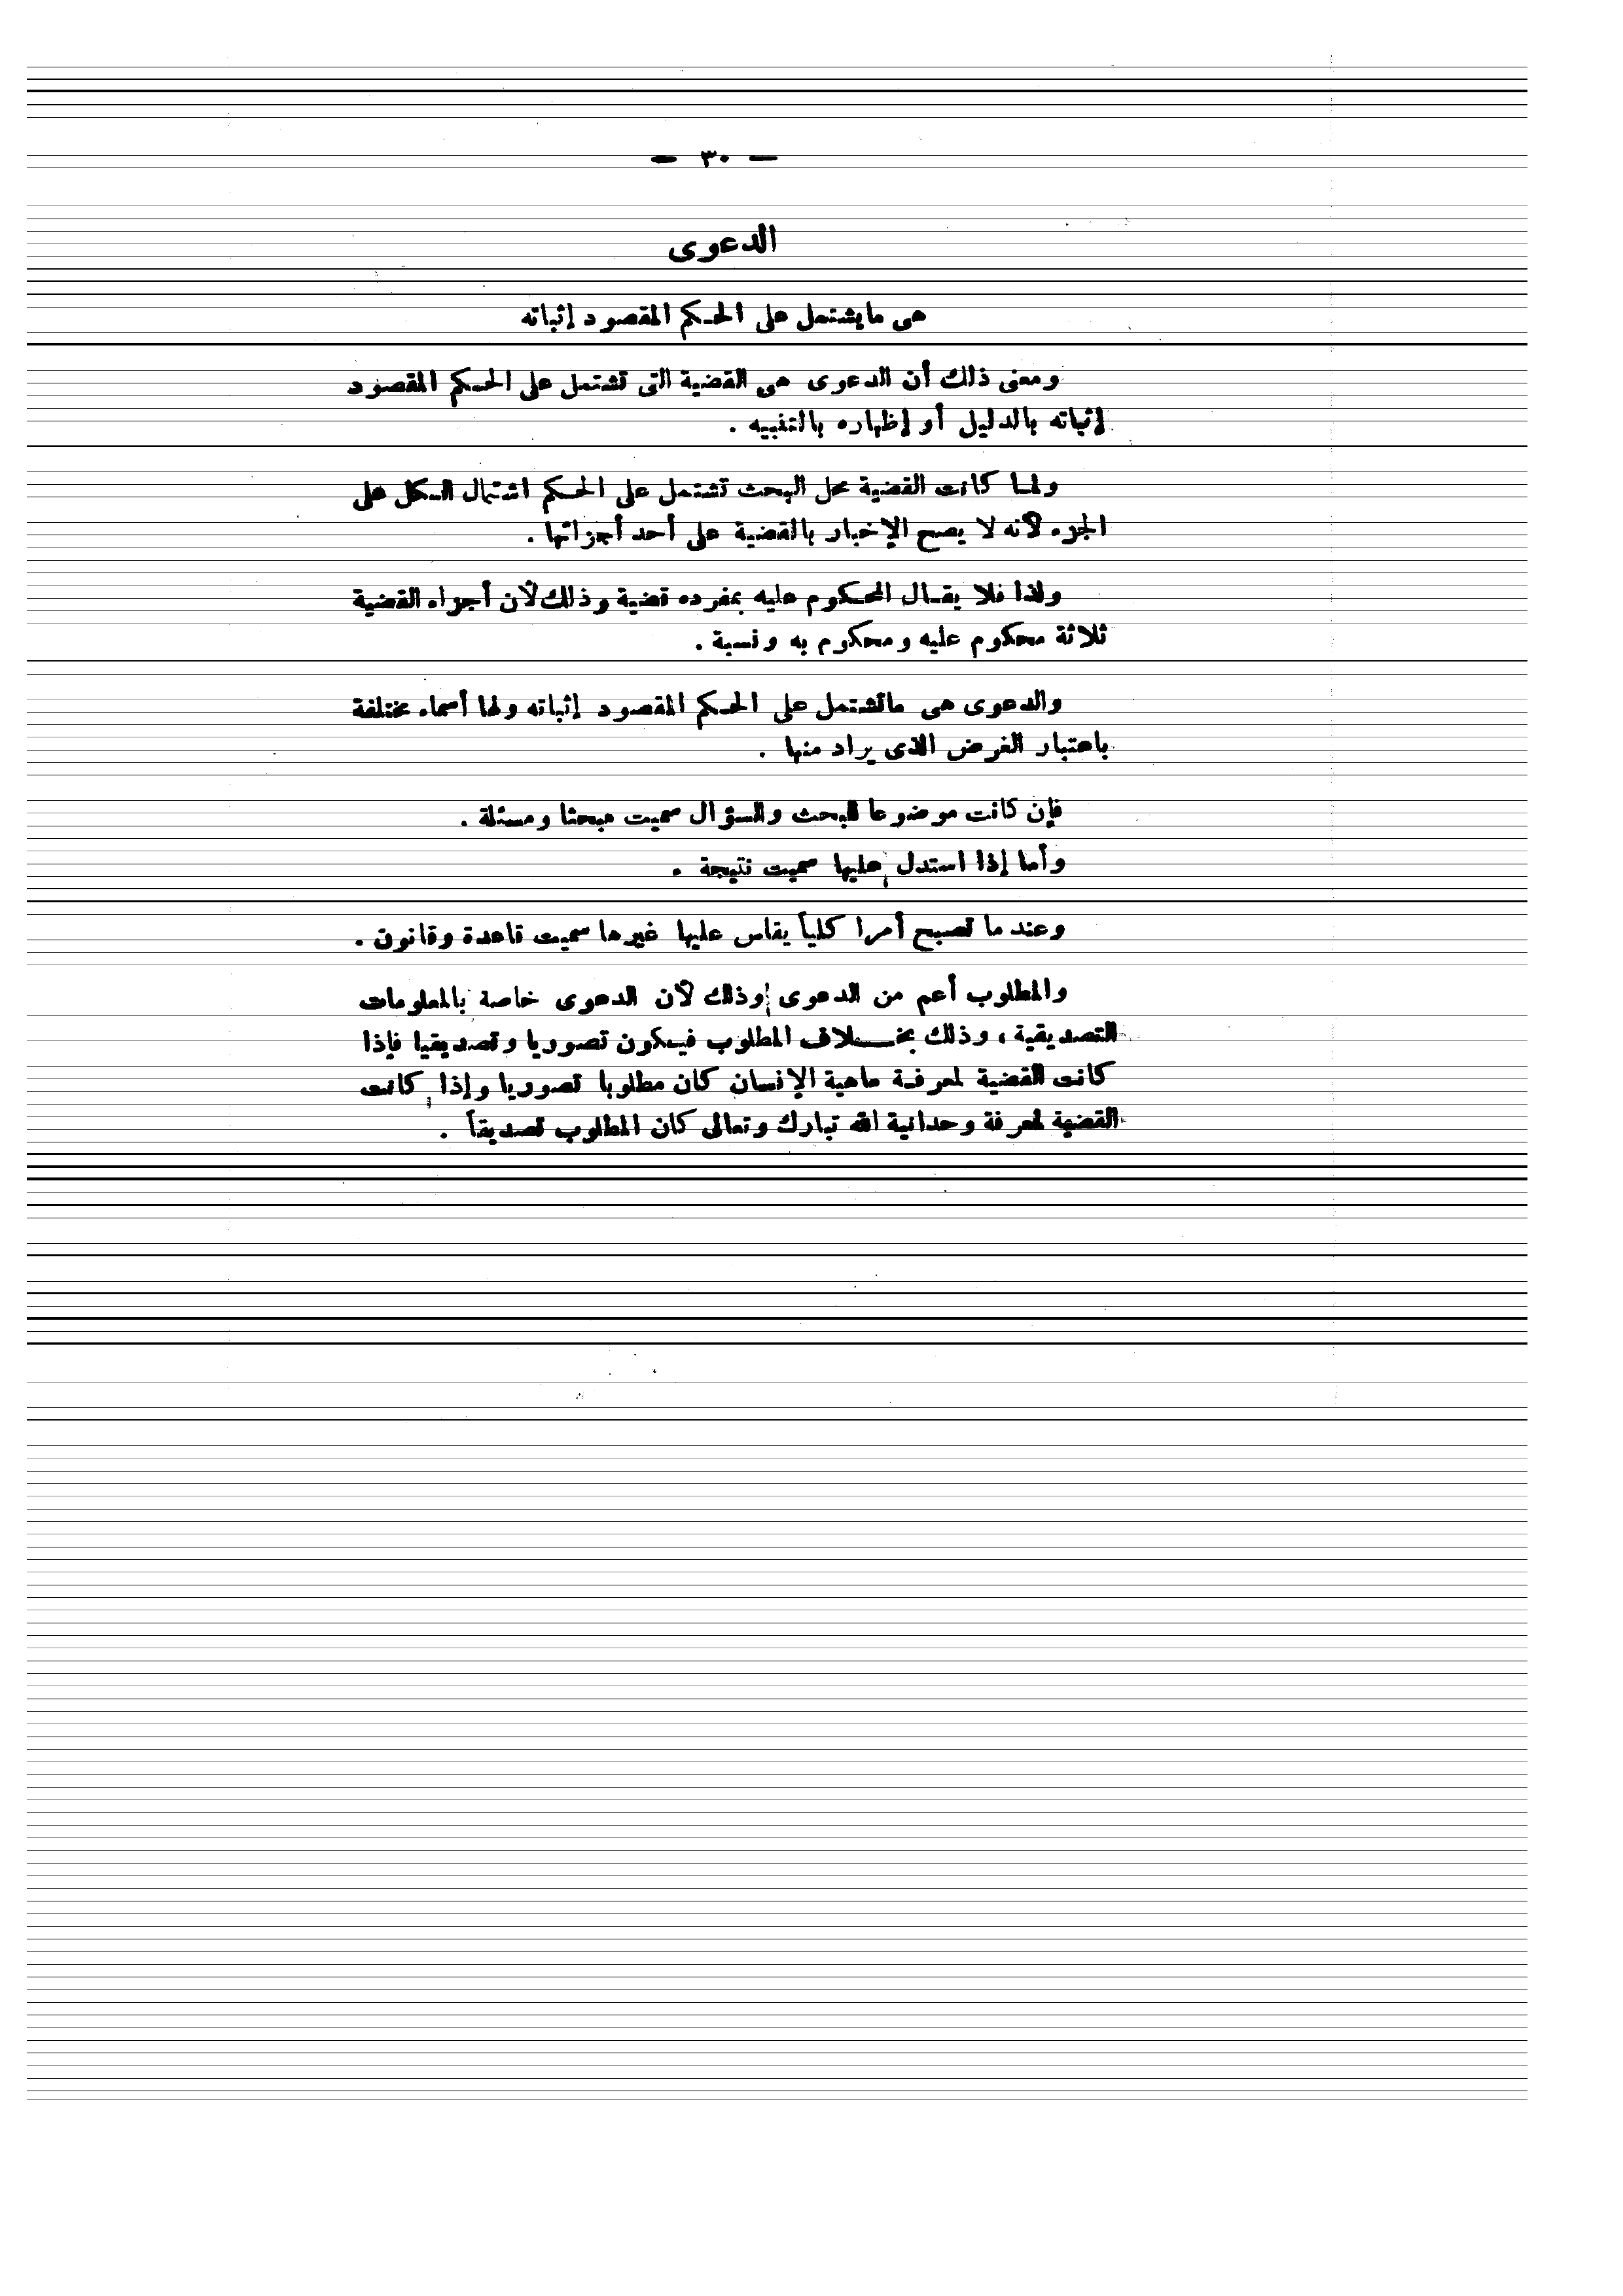 — ٣٠ —
الدعوى
هى ما يشتمل على الحكم المقصود إثباته
ومعنى ذلك أن الدعوى هى القضية التى تشتمل على الحكم المقصود
إثباته بالدليل أو إظهاره بالتنبيه .
ولما كانت القضية محل البحث تشتمل على الحكم اشتمال الكل على
الجزء لأنه لا يصح الإخبار بالقضية على أحد أجزائها .
ولذا فلا يقال المحكوم عليه بمفرده قضية وذلك لأن أجزاء القضية
ثلاثة محكوم عليه ومحكوم به ونسبة .
والدعوى هى ما تشتمل على الحكم المقصود إثباته ولها أسماء مختلفة
باعتبار الغرض الذى يراد منها .
فإن كانت موضوعا للبحث والسؤال سميت مبحثا ومسئلة .
وأما إذا استدل عليها سميت نتيجة .
وعند ما تصبح أمرا كلياً يقاس عليها غيرها سميت قاعدة وقانون .
والمطلوب أعم من الدعوى وذلك لأن الدعوى خاصة بالمعلومات
التصديقية ، وذلك بخلاف المطلوب فيكون تصوريا وتصديقيا فإذا
كانت القضية لمعرفة ماهية الإنسان كان مطلوبا تصوريا وإذا كانت
القضية لمعرفة وحدانية الله تبارك وتعالى كان المطلوب تصديقاً .